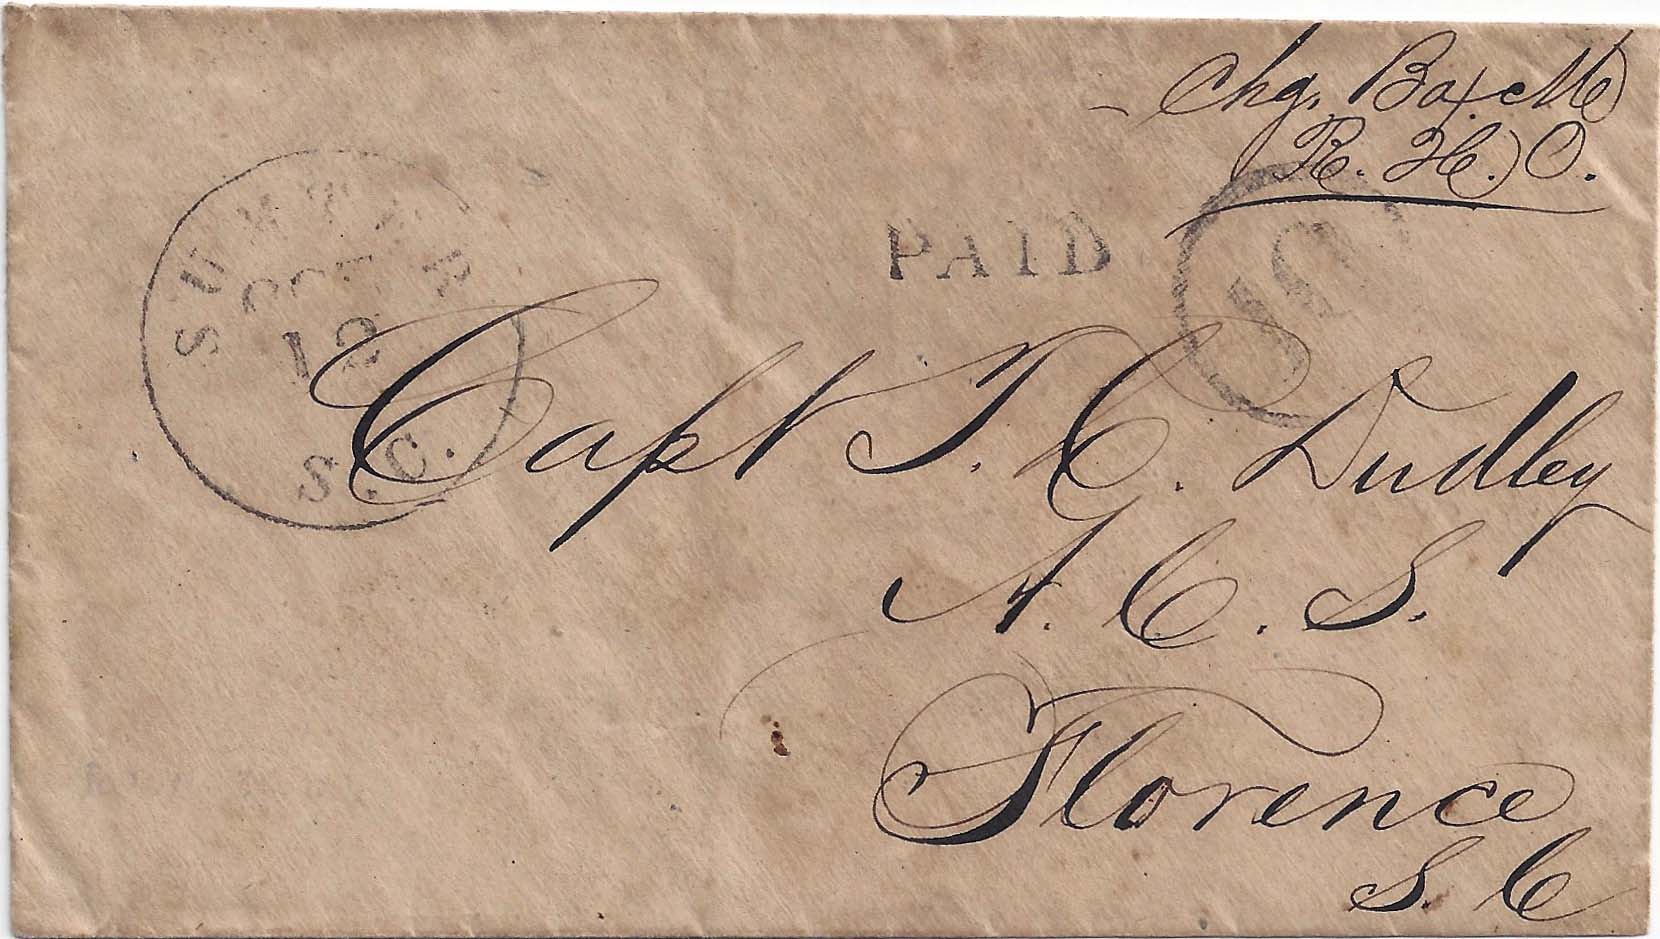 Chg. Box
R. H. O.
SUMTER
OCT
12
S.C.
PAID
10
Capt T. C. Dudley
A. C. S.
Florence
S. C